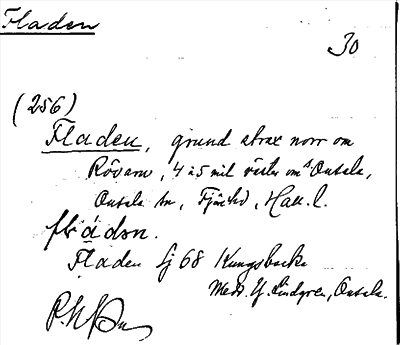 Fladen
30
(256)
Fladen, grund strax norr om
Rövarn, 4 à 5 mil väster om s. Onsala,
Onsala sn, Fjäre hd, Hall. l.
Fladen Gj 68 Kungsbacka
Medd. Lindgren, Onsala.